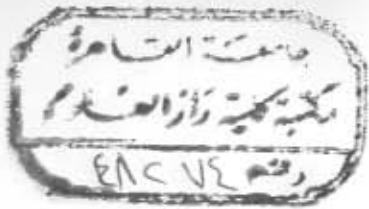 جامعة القاهرة
مكتبة كلية دار العلوم
رقم ٤٨٢٧٤